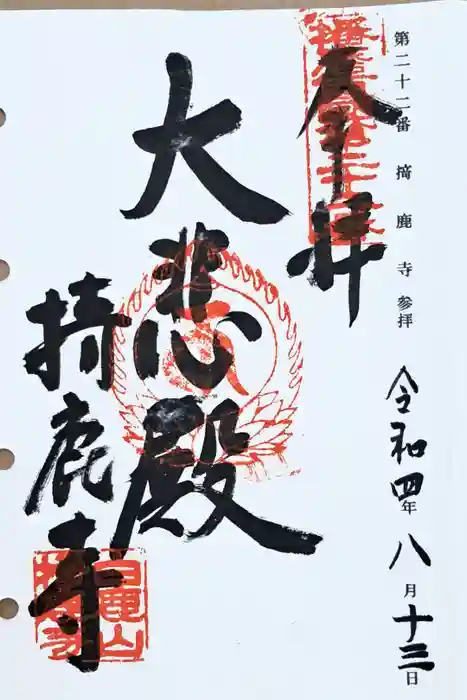 第二十二番 掎鹿寺 参拝
令和四年八月十三日
奉拝
大悲殿
掎鹿寺